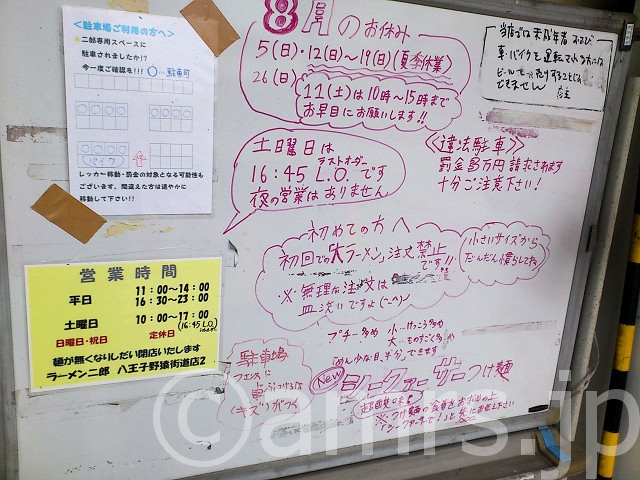 <駐車場ご利用の方へ>
★二郎専用スペースに
駐車されましたか!?
今一度ご確認を!!! ○…駐車可
バイク
しっカー移動・罰金の対象となる可能性も
ございます。間違えた方は速やかに
移動して下さい!!
8月のお休み
5(日)・12(日)~19(日)(夏季休業)
26(日)
11(土)は10時~15時まで
お早目にお願いします!!
当店では未成年者および
車・バイクを運転される方には
ビールをお売りすることは
できません 店主
土曜日は
ラストオーダー
16:45 L.O.です
夜の営業はありません
《違法駐車》
罰金 万円請求されます
十分ご注意下さい!
初めての方へ
初回での大ラーメン注文禁止
です!!
※無理な注文は
皿洗いですよ(-へ-)
小さいサイズから
だんだん慣らしてね
営業時間
平日 11:00~14:00
16:30~23:00
土曜日 10:00~17:00
(16:45 L.O.)
日曜日・祝日 定休日
麺が無くなりしだい閉店いたします
ラーメン二郎 八王子野猿街道店2
プチ…多め 小…けっこう多め
大…ものすごく多め
「めん少な目、半分」できます
駐車場
フェンスに
(キズ)がつく
New シークァーサーつけ麺
※つけ麺の食券をお出しの上
©amrs.jp